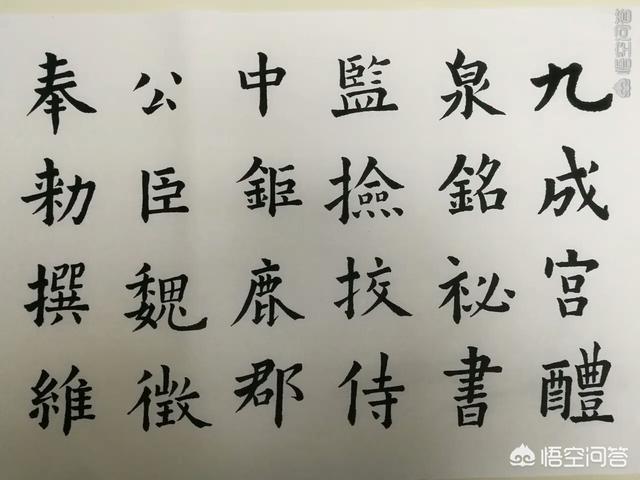 九成宮醴
泉銘祕書
監撿挍侍
中鉅鹿郡
公臣魏徵
奉勅撰維
悟空问答